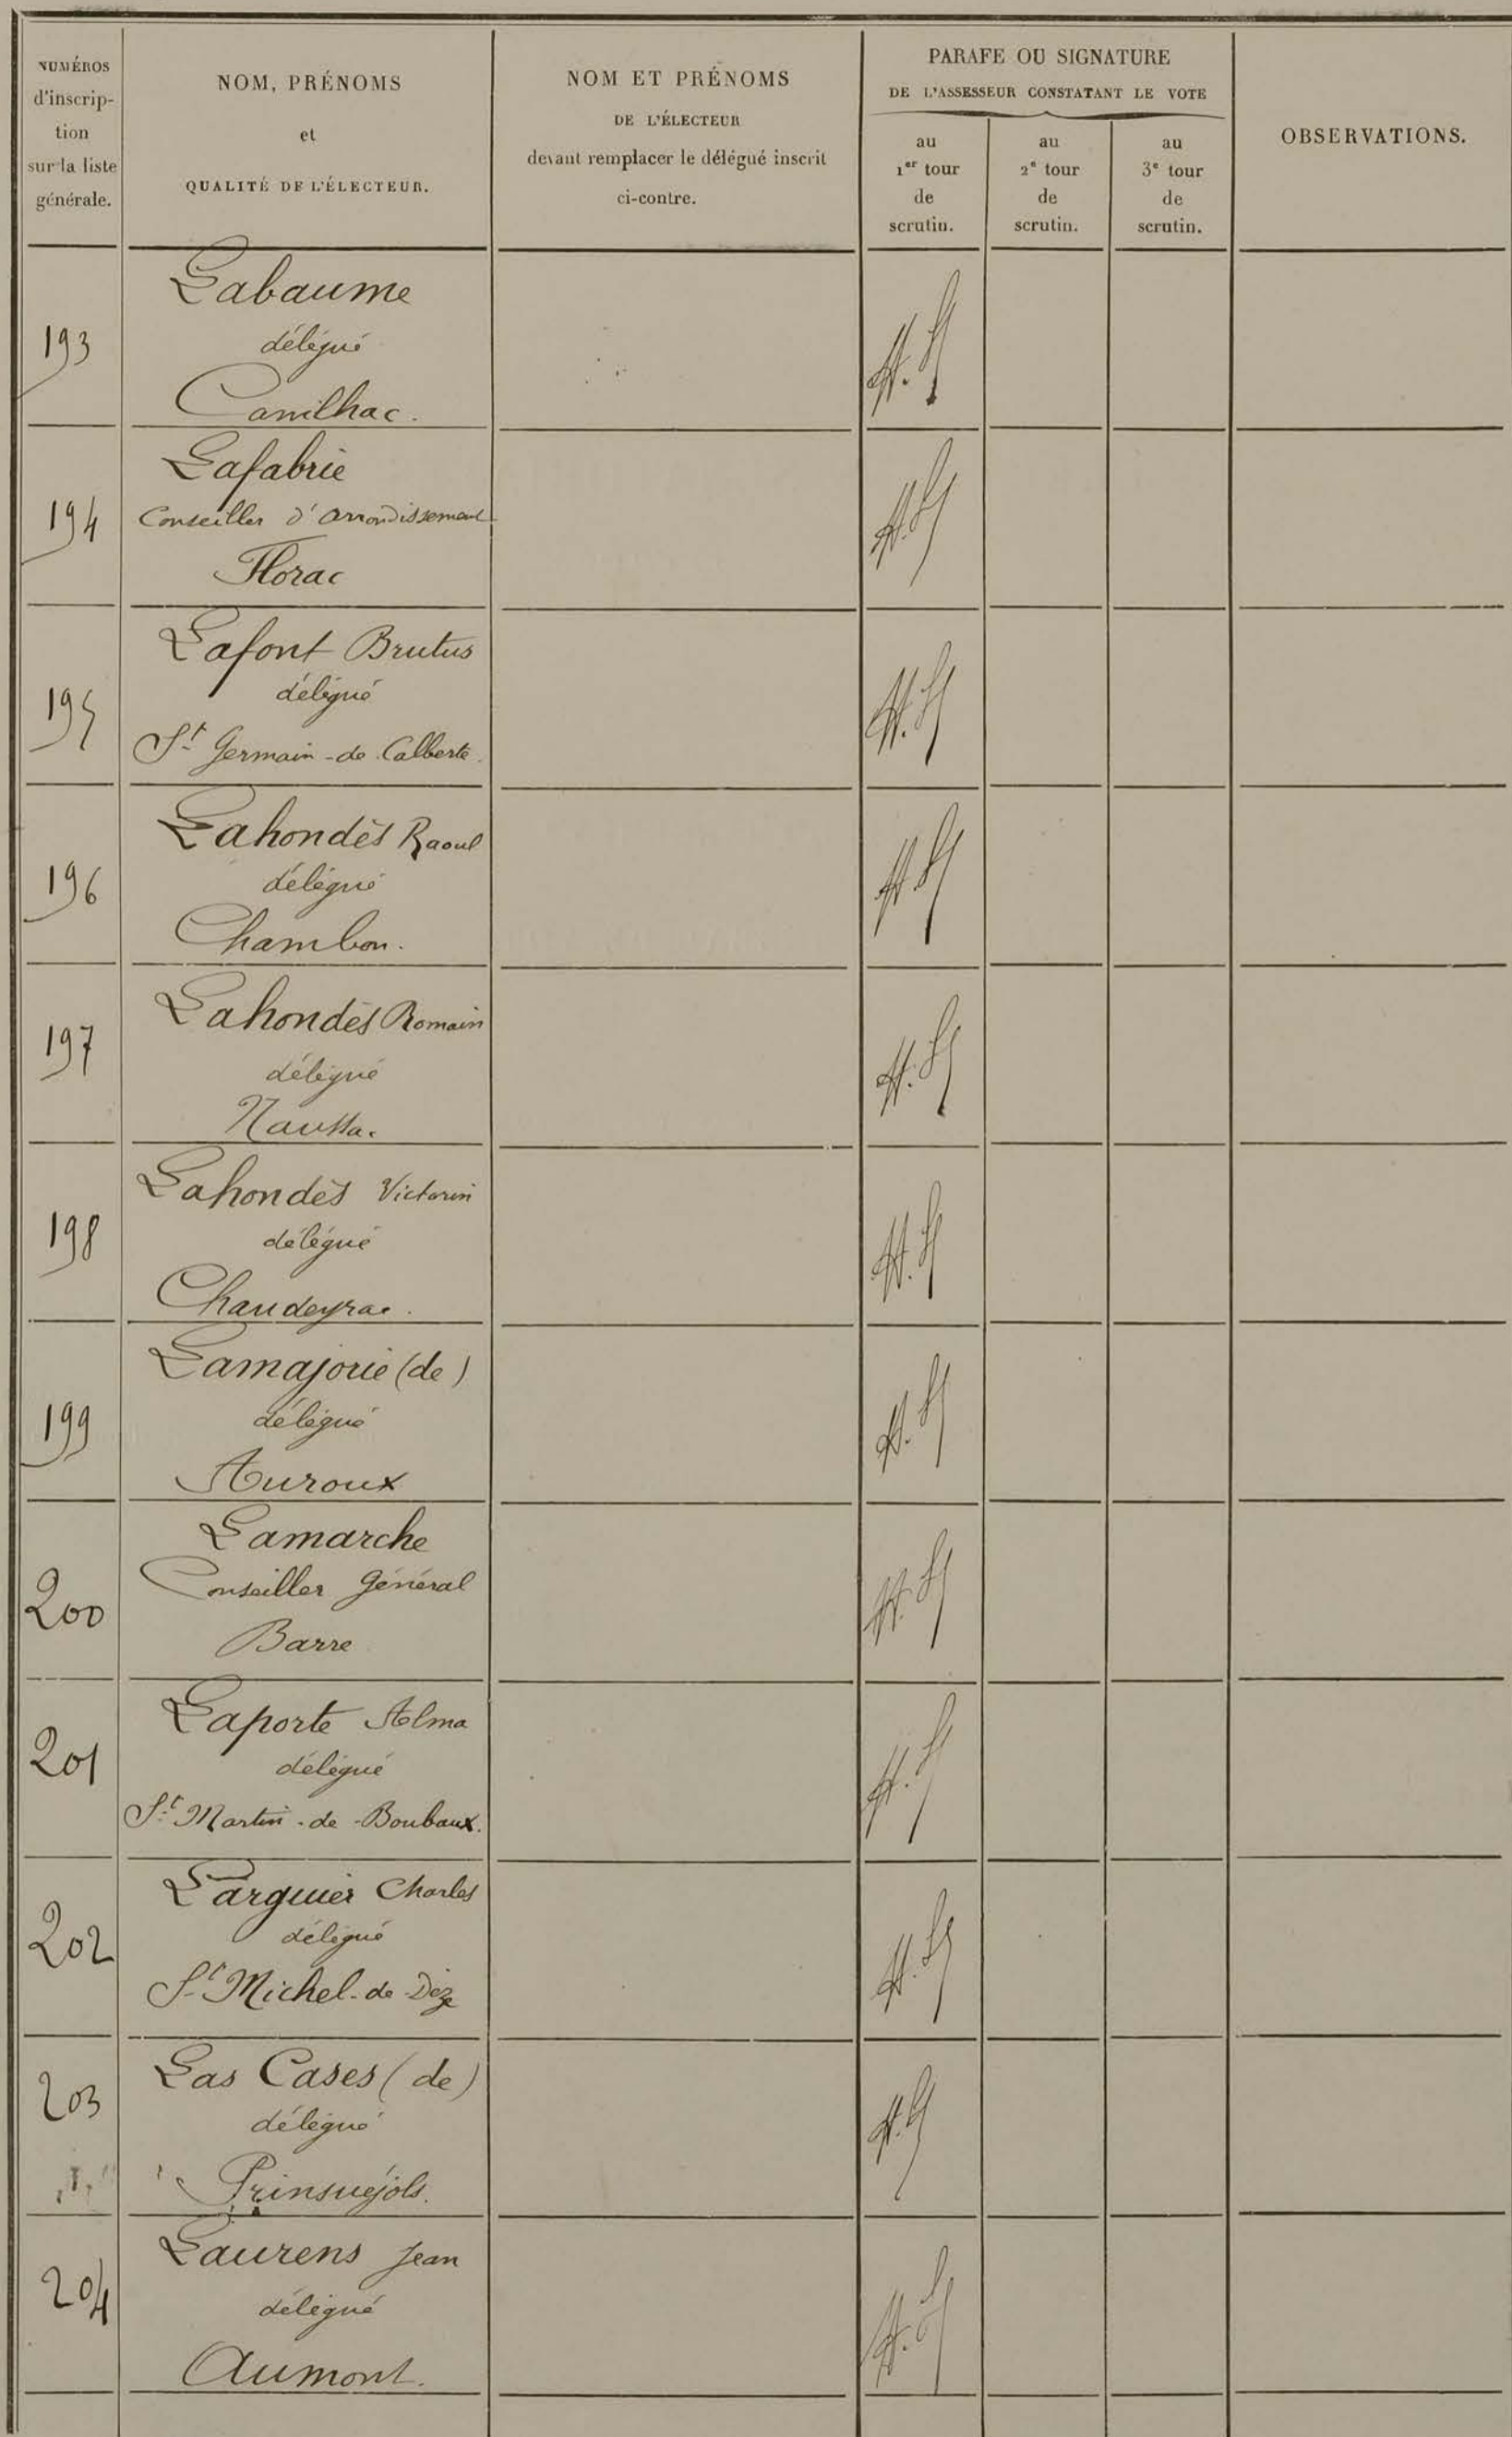 NUMÉROS
d'inscrip-
tion
sur la liste
générale.
NOM, PRÉNOMS
et
QUALITÉ DE L'ÉLECTEUR.
NOM ET PRÉNOMS
DE L'ÉLECTEUR
devant remplacer le délégué inscrit
ci-contre.
PARAFE OU SIGNATURE
DE L'ASSESSEUR CONSTATANT LE VOTE
au
1er tour
de
scrutin.
au
2e tour
de
scrutin.
au
3e tour
de
scrutin.
OBSERVATIONS.
193
Labaume
délégué
Canilhac.
194
Lafabrie
Conseiller d'arrondissement
Florac
195
Lafont Brutus
délégué
St Germain-de-Calberte.
196
Lahondès Raoul
délégué
Chambon.
197
Lahondès Romain
délégué
Naussac
198
Lahondès Victorin
délégué
Chaudeyrac.
199
Lamajorie (de)
délégué
Auroux
200
Lamarche
Conseiller Général
Barre
201
Laporte Alma
délégué
St Martin-de-Boubaux.
202
Larguier Charles
délégué
St Michel-de-Dèze
203
Las Cases (de)
délégué
Prinsuéjols.
204
Laurens Jean
délégué
Aumont.